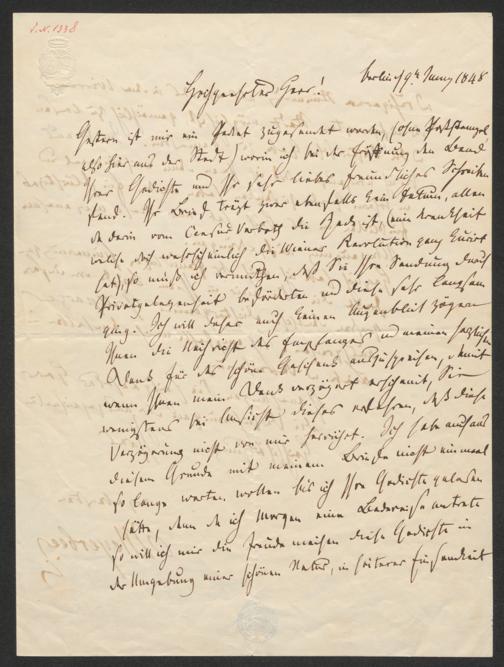 I.N. 1338
Berlin d 9t Juny 1848
Hochgeehrter Herr!
Gestern ist mir ein Paket zugesendet worden, (ohne Poststempel
also hier aus der Stadt) worin ich bei der Eröffnung den Band
Ihrer Gedichte und Ihr sehr liebes freundliches Schreiben
fand. Ihr Brief trägt zwar ebenfalls kein Datum, allein
da darin vom Censur Verbote die Rede ist, (eine Krankheit
welche doch wahrscheinlich die Wiener Revolution ganz kurirt
hat), so muß ich vermuthen, daß Sie Ihre Sendung durch
Privatgelegenheit beförderten und diese sehr langsam
ging. Ich will daher auch keinen Augenblick zögern
Ihnen die Nachricht des Empfanges und meinen herzlichen
Dank für das schöne Geschenk auszusprechen, damit
wenn Ihnen mein Dank verzögert erscheint, Sie
wenigstens bei Ansicht dieses ersehen, daß diese
Verzögerung nicht von mir herrührt. Ich habe auch aus
diesem Grunde mit meinem Briefe nicht einmal
so lange warten wollen bis ich Ihre Gedichte gelesen
hätte, denn da ich Morgen eine Badereise antrete
so will ich mir die Freude machen diese Gedichte in
der Umgebung einer schönen Natur, in heiterer Einsamkeit